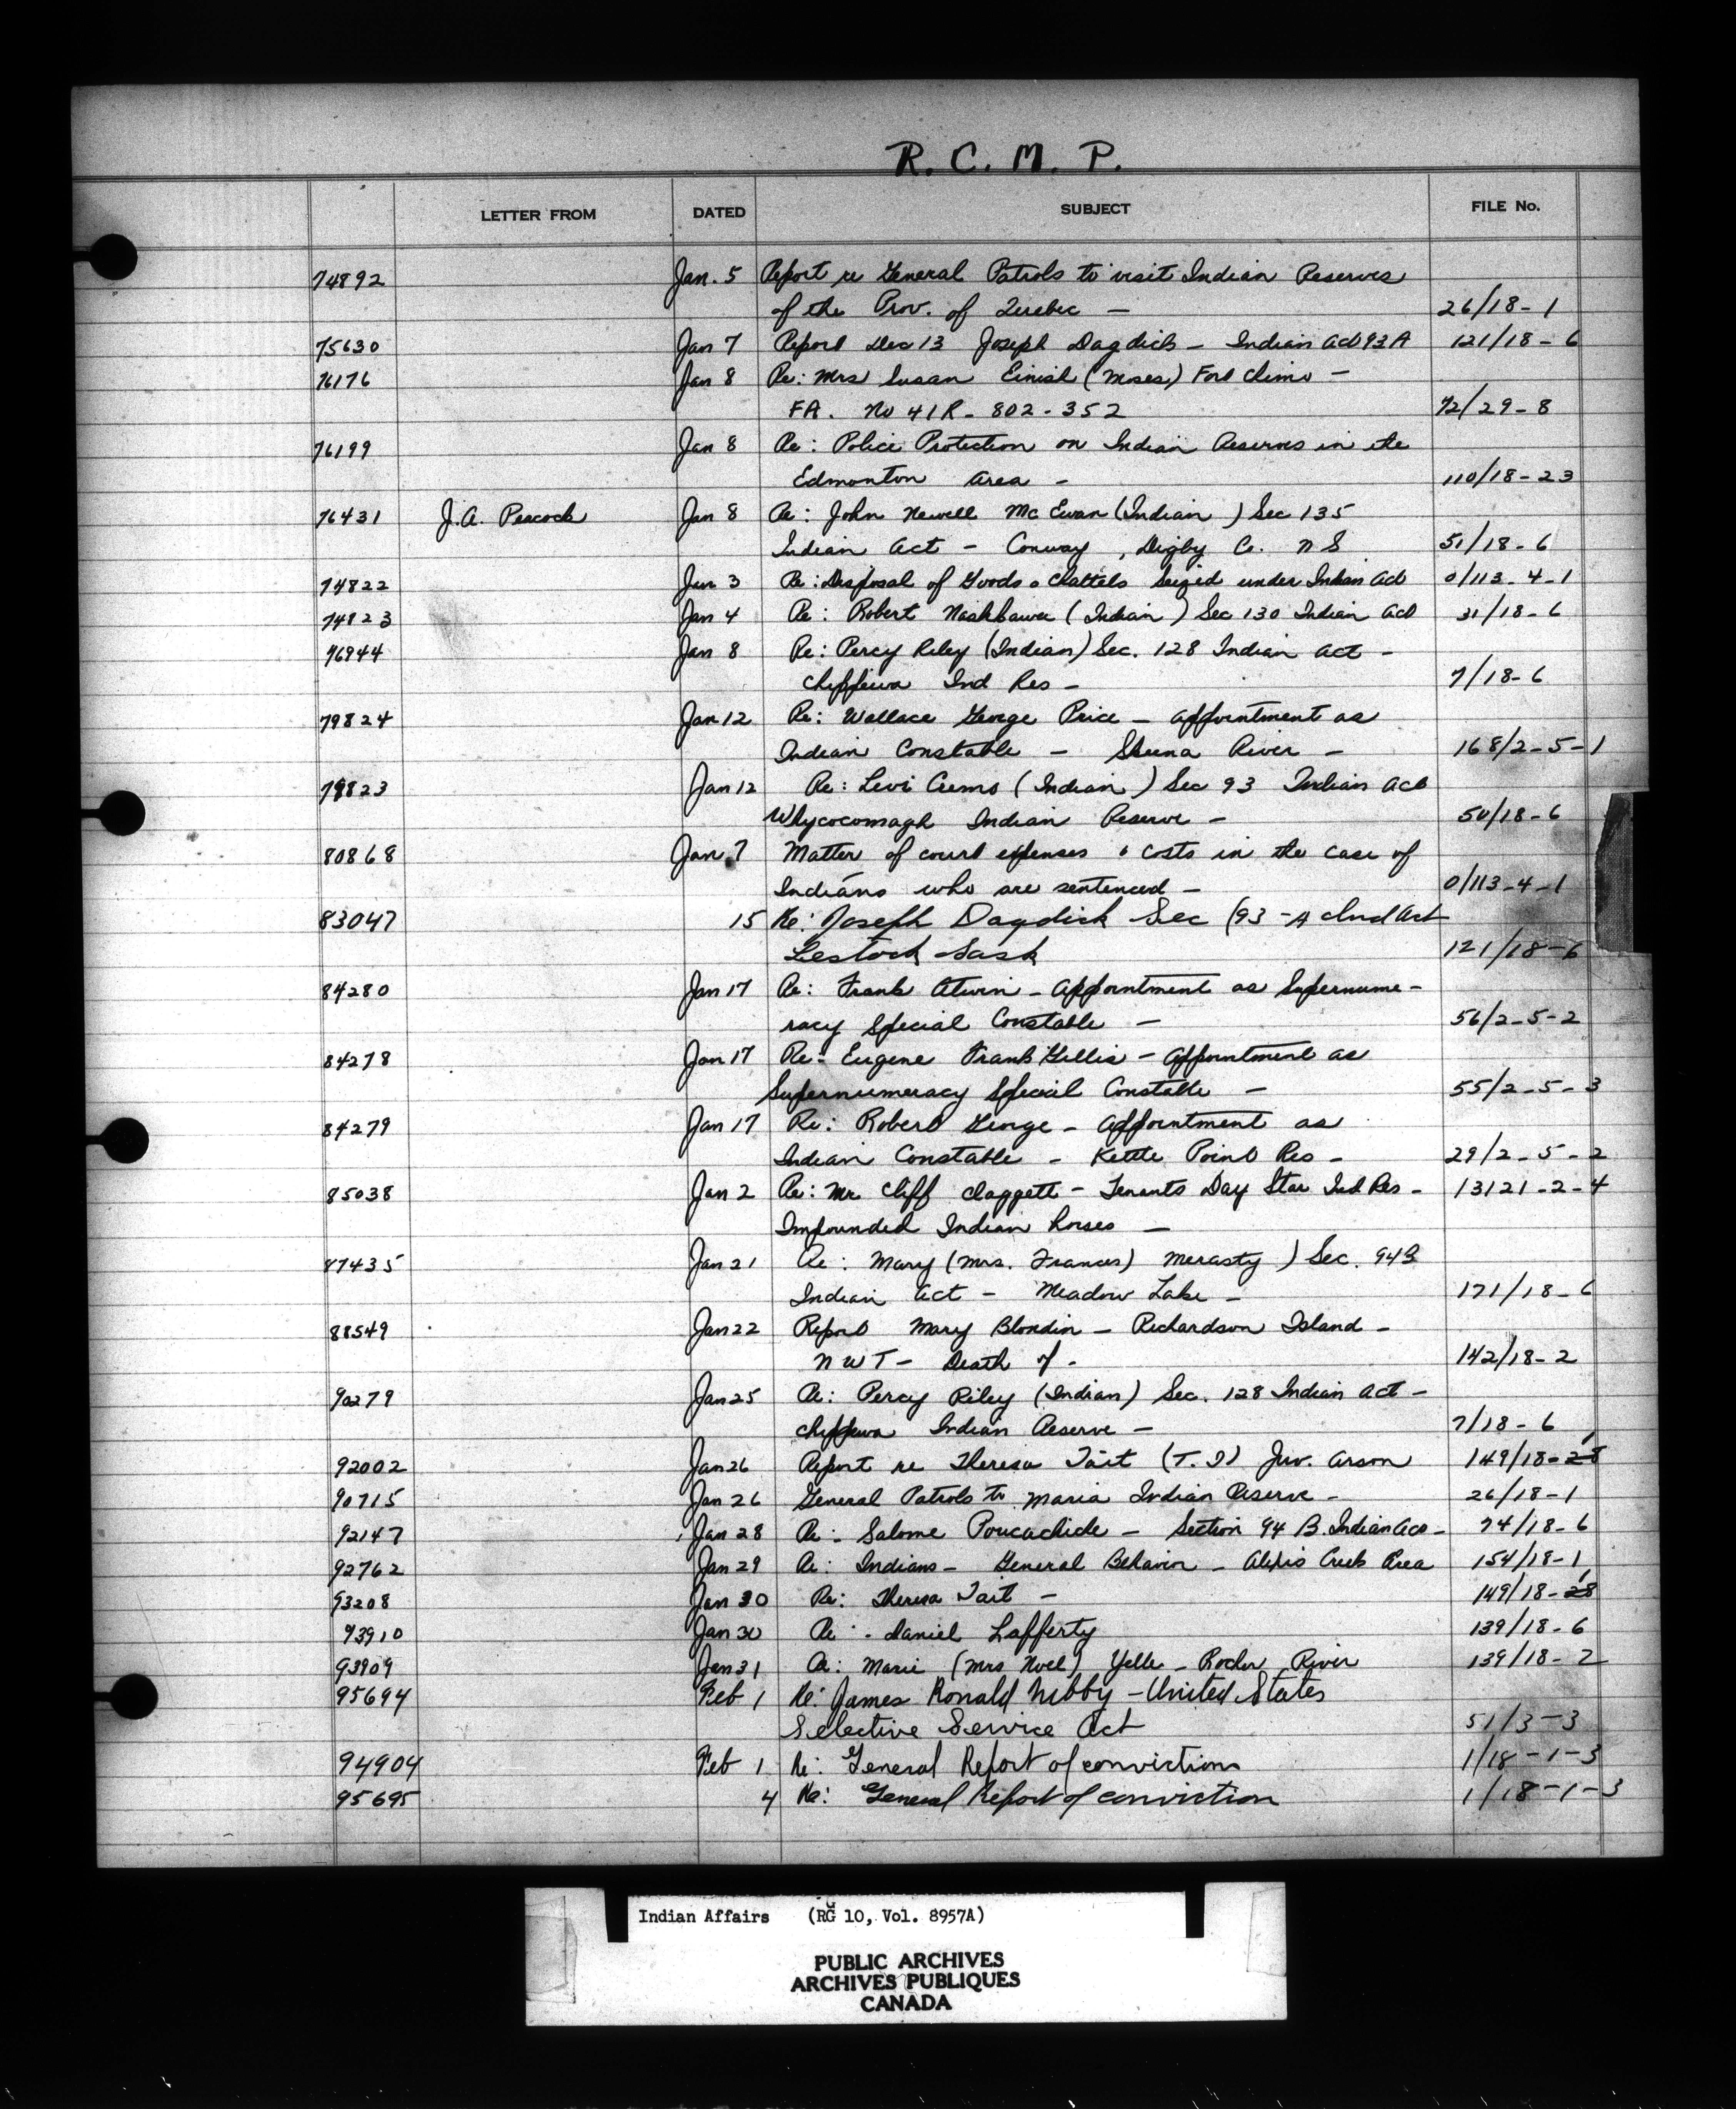 R. C. M. P.
LETTER FROM DATED SUBJECT FILE No.
74892 Jan. 5 Report re General Patrols to visit Indian Reserves
of the Prov. of Quebec — 26/18-1
75630 Jan 7 Report Dec 13 Joseph Dagdick — Indian Act 93A 121/18-6
76176 Jan 8 Re: Mrs Susan Einish (Moses) Fort Chimo —
FA. No 41R-802-352 72/29-8
76199 Jan 8 Re: Police Protection on Indian Reserves in the
Edmonton area — 110/18-23
76431 J.A. Peacock Jan 8 Re: John Newell McEwan (Indian) Sec 135
Indian Act — Conway, Digby Co. N S 51/18-6
74822 Jan 3 Re: Disposal of Goods & Chattels Seized under Indian Act 0/113-4-1
74823 Jan 4 Re: Robert (Indian) Sec 130 Indian Act 31/18-6
76944 Jan 8 Re: Percy Riley (Indian) Sec. 128 Indian Act —
Chippewa Ind Res — 7/18-6
79824 Jan 12 Re: Wallace George Price — appointment as
Indian Constable — Skeena River — 168/2-5-1
79823 Jan 12 Re: Levi (Indian) Sec 93 Indian Act
Whycocomagh Indian Reserve — 50/18-6
80868 Jan 7 Matter of court expenses & costs in the case of
Indians who are sentenced — 0/113-4-1
83047 15 Re: Joseph Dagdick Sec (93-A Ind Act
Lestock Sask 121/18-6
84280 Jan 17 Re: Frank Atwin — Appointment as Supernume-
racy Special Constable — 56/2-5-2
84278 Jan 17 Re: Eugene Frank Gillis — Appointment as
Supernumeracy Special Constable — 55/2-5-3
84279 Jan 17 Re: Robert George — Appointment as
Indian Constable — Kettle Point Res — 29/2-5-2
85038 Jan 2 Re: Mr Cliff Claggett — Tenants Day Star Ind Res — 13121-2-4
Impounded Indian horses —
87435 Jan 21 Re: Mary (Mrs. Frances) Merasty) Sec. 94B
Indian Act — Meadow Lake — 171/18-6
88549 Jan 22 Report Mary Blondin — Richardson Island —
N W T — Death of — 142/18-2
90279 Jan 25 Re: Percy Riley (Indian) Sec. 128 Indian Act —
Chippewa Indian Reserve — 7/18-6
92002 Jan 26 Report re Theresa Tait (T.I) Juv. Arson 149/18-28
90715 Jan 26 General Patrols to Maria Indian Reserve — 26/18-1
92147 Jan 28 Re: Salome Poucachiche — Section 94 B. Indian Act — 74/18-6
92762 Jan 29 Re: Indians — General Behavior — Alexis Creek Area 154/18-1
93208 Jan 30 Re: Theresa Tait — 149/18-28
93910 Jan 30 Re: Daniel Lafferty 139/18-6
93909 Jan 31 Re: Marie (Mrs Noel) Yelle — Rocher River 139/18-2
95694 Feb 1 Re: James Ronald Nibby — United States
Selective Service Act 51/3-3
94904 Feb 1 Re: General Report of convictions 1/18-1-3
95695 4 Re: General Report of conviction 1/18-1-3
Indian Affairs (RG 10, Vol. 8957A)
PUBLIC ARCHIVES
ARCHIVES PUBLIQUES
CANADA